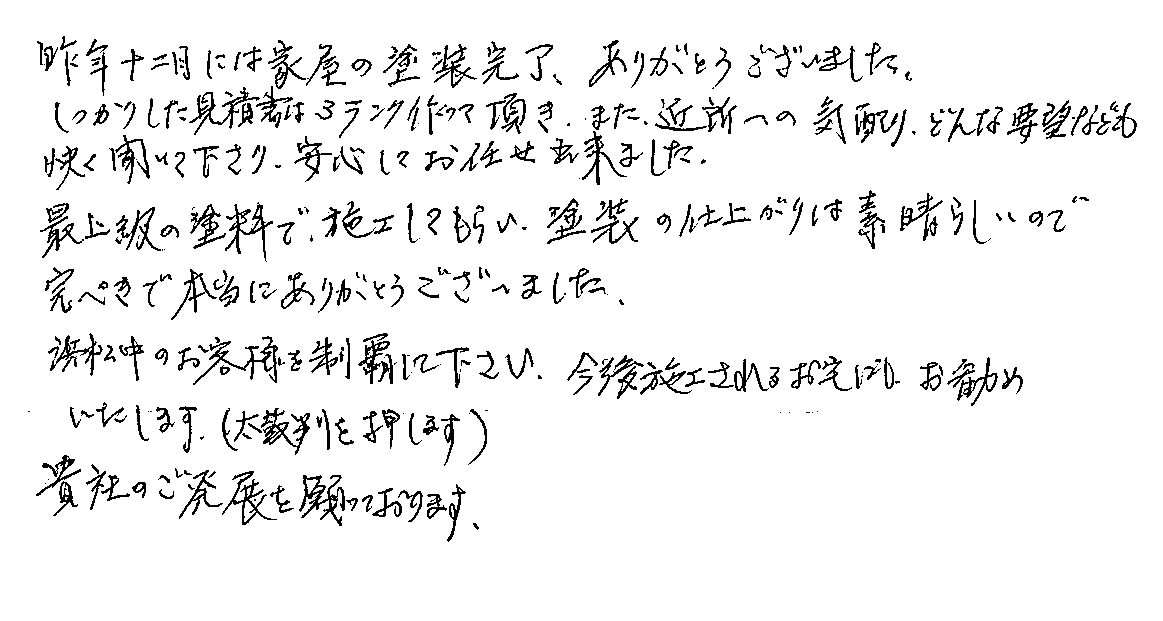 昨年十二月には家屋の塗装完了、ありがとうございました。
しっかりした見積書は3ランク作って頂き、また、近所への気配り、どんな要望なども
快く聞いて下さり、安心してお任せ出来ました。
最上級の塗料で、施工してもらい、塗装の仕上がりは素晴らしいので
完ぺきで本当にありがとうございました、
浜松中のお客様を制覇して下さい、今後施工されるお宅にも、お勧め
いたします。(太鼓判を押します)
貴社のご発展を願っております、